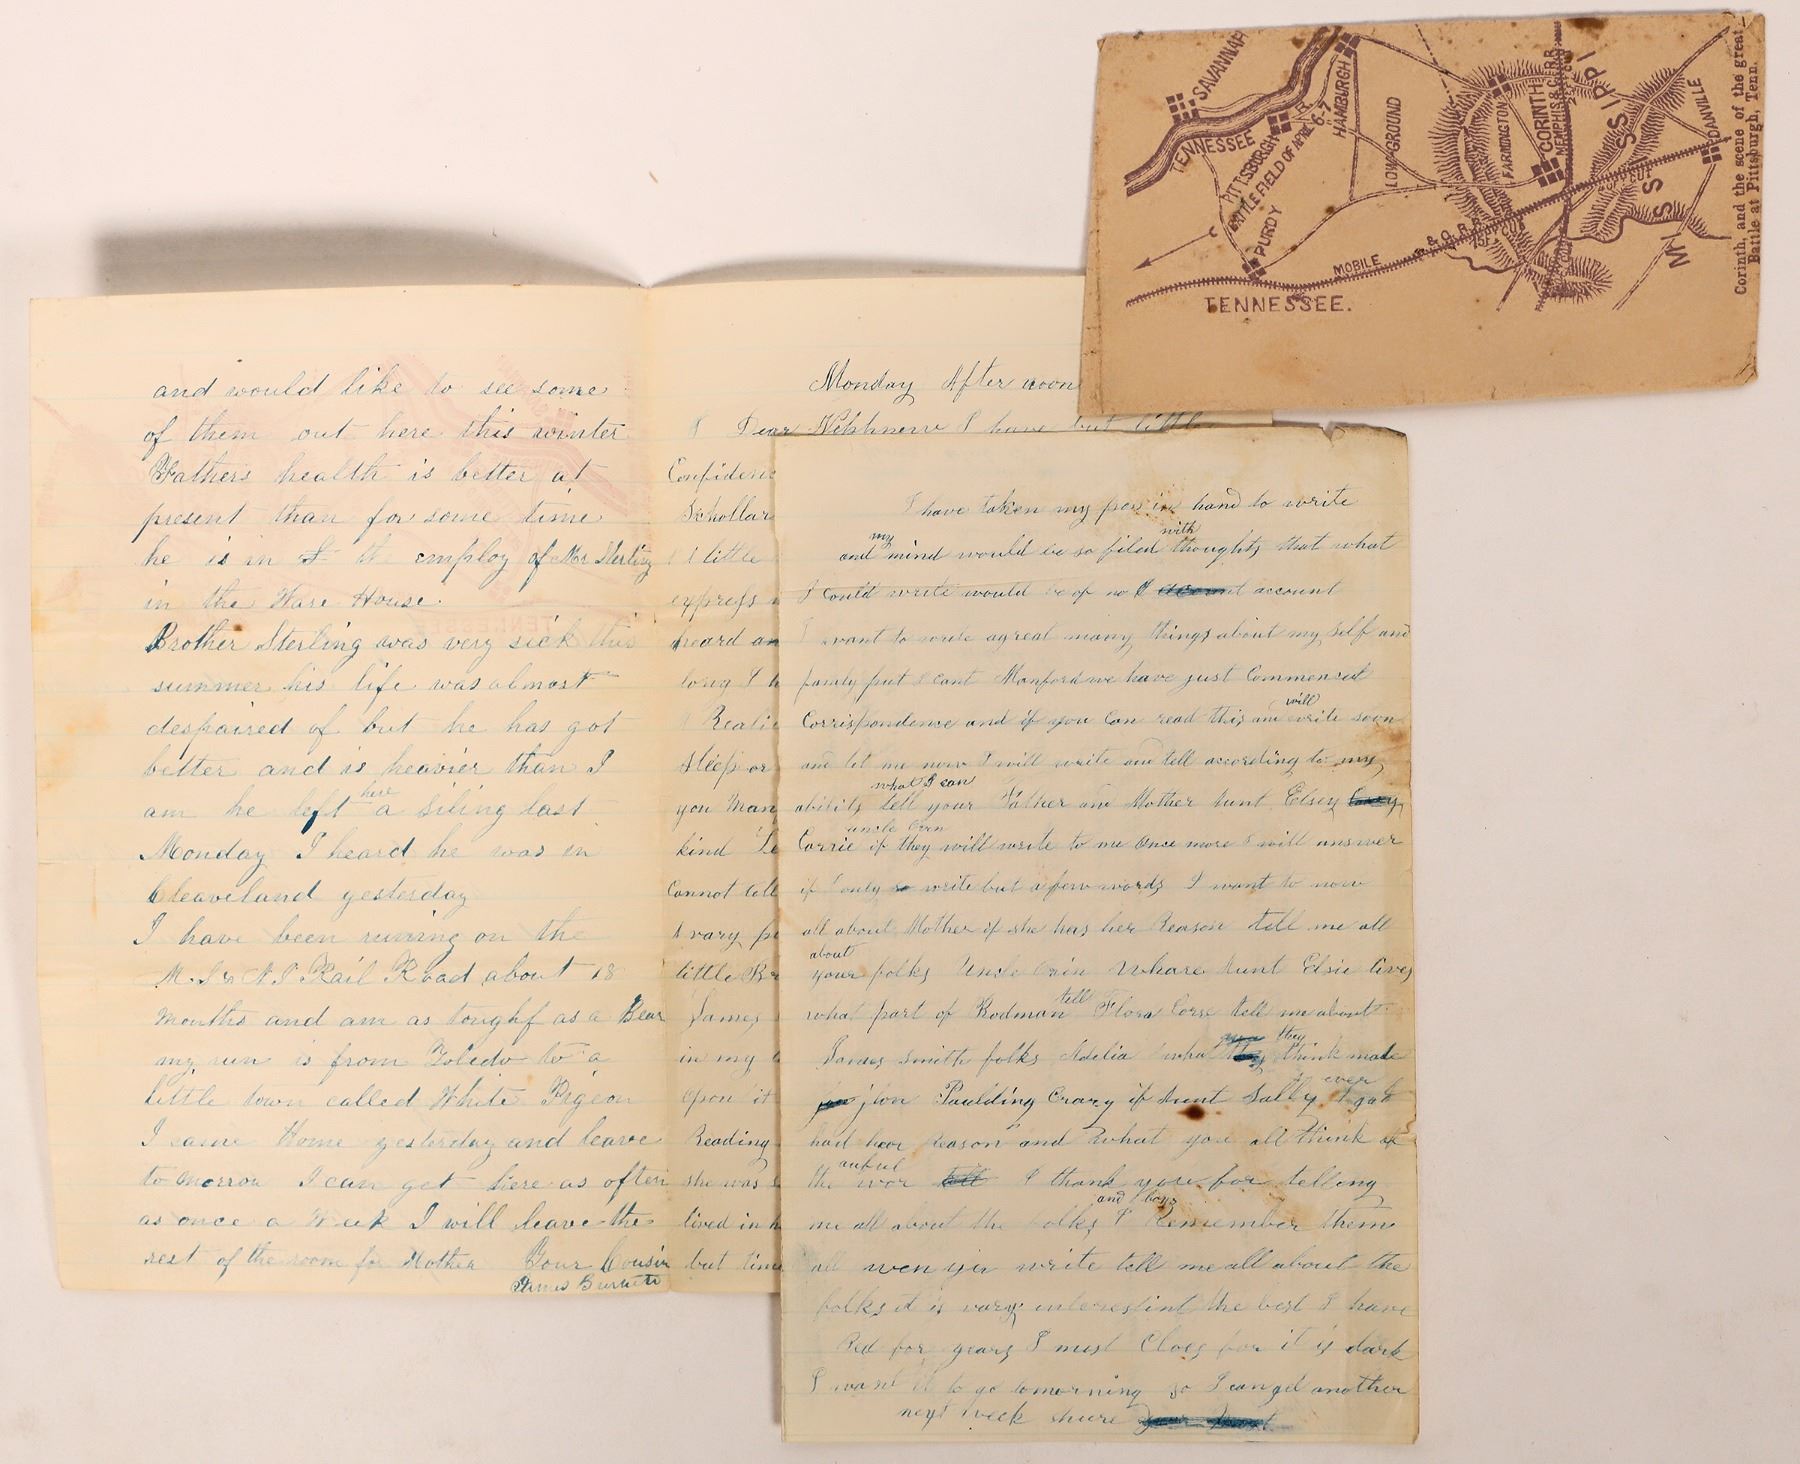 and would like to see some
of them out here this winter
Fathers health is better at
present than for some time
he is in employ of Mr Sterling
in the Ware House.
Brother Sterling was very sick this
summer his life was almost
despaired of but he has got
better and is heavier than I
here
am he left a Siling last
Monday I heard he was in
Cleaveland yesterday
I have been runing on the
M. S. & N. I Rail Road about 18
months and am as toughf as a Bear
my run is from Toledo to a
little town called White Pigeon
I came Home yesterday and leave
to morrow I can get here as often
as once a Week I will leave the
rest of the room for Mother Your Cousin
James
Monday After noon
Dear I have but little
Confidenc
Schollar
A little
express
heard an
long I h
A Realiz
sleep or
you Man
kind Le
Cannot tell
A vary
little Br
James
in my
Upon it
Reading
she was
lived in h
but time
I have taken my pen in hand to write
my with
and mind would be so filed thoughts that what
I could write would be of no account
I want to write agreat many things about my self and
family put I cant Monford we have just Commenced
will
Corrispondence and if you Can read this and write soon
and let me now I will write and tell according to my
what I can
ability tell your Father and Mother Aunt Elsey
uncle Orin
Corrie if they will write to me once more I will answer
if I only write but a few words I want to now
all about Mother if she has her Reason tell me all
about
your folks Uncle Orin Whare Aunt Elsie lives
tell
what part of Rodman Flora Corse tell me about
they
James Smith folks Adelia what think made
jhon Paulding Crazy if Aunt Sally got
ever
had hear Reason and what you all think of
awful
the wor I thank you for tellong
and I long
me all about the folks I Remember them
all wen yer write tell me all about the
folks it is vary interestint the best I have
Red for years I must Cloes for it is dark
I want it to go tomorning so I can get another
next week shure
SAVANNAH
TENNESSEE R.
PITTSBURGH
BATTLE FIELD OF APRIL 6-7
HAMBURGH
PURDY
LOW GROUND
FARMINGTON
CORINTH
MEMPHIS & C. R.R.
MISSISSIPPI
DANVILLE
MOBILE & O. R.R.
75 FT CUT
TENNESSEE.
Corinth, and the scene of the great
Battle at Pittsburgh, Tenn.